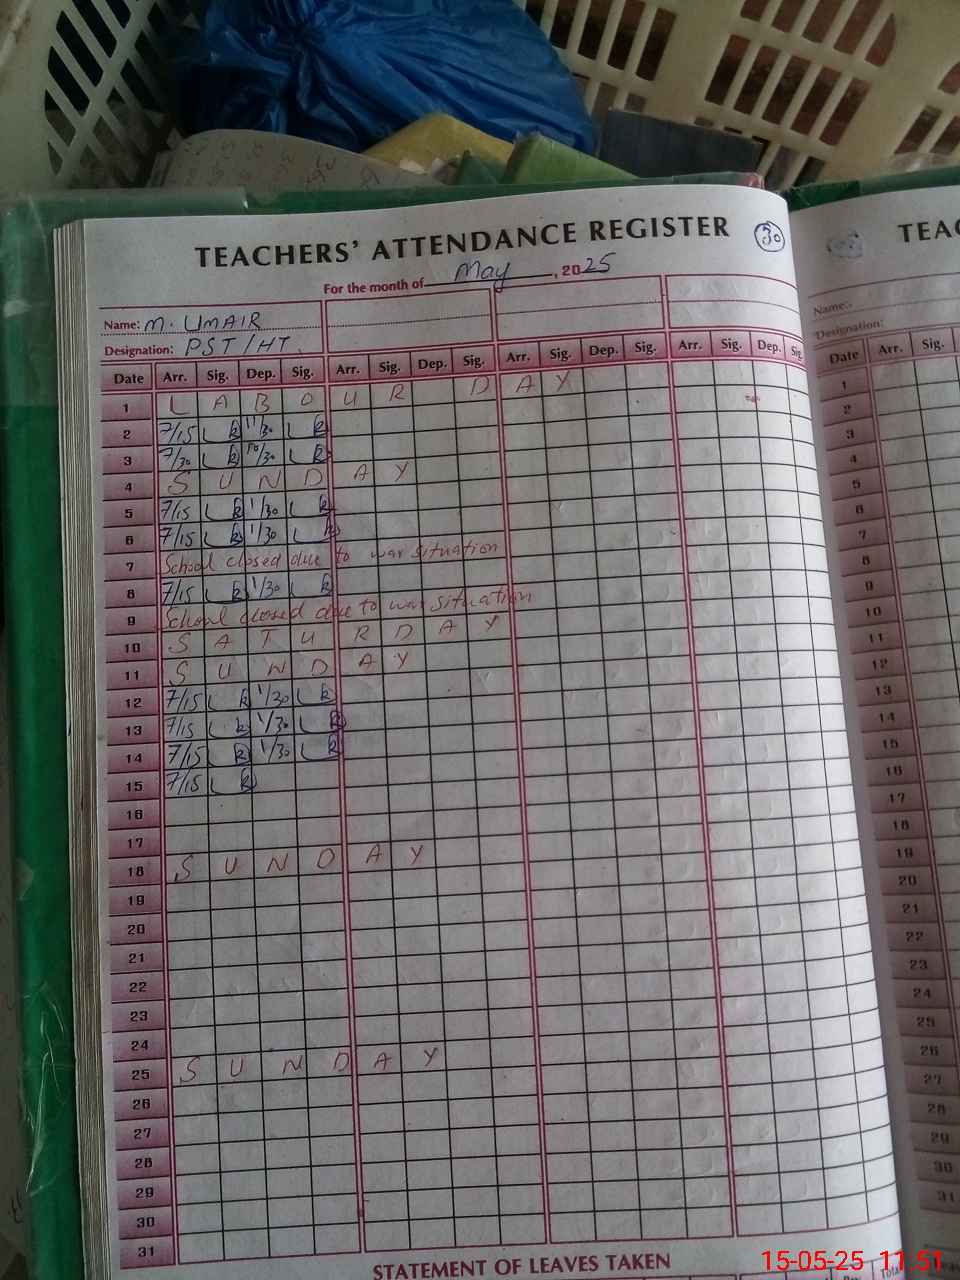 TEACHERS' ATTENDANCE REGISTER 30
For the month of May, 2025
Name: M. UMAIR
Designation: PST/HT.
Date Arr. Sig. Dep. Sig. Arr. Sig. Dep. Sig. Arr. Sig. Dep. Sig. Arr. Sig. Dep. Sig.
1 L A B O U R D A Y
2 7/15 11/30
3 7/30 10/30
4 S U N D A Y
5 7/15 1/30
6 7/15 1/30
7 School closed due to war situation
8 7/15 1/30
9 School closed due to war situation
10 S A T U R D A Y
11 S U N D A Y
12 7/15 1/30
13 7/15 1/30
14 7/15 1/30
15 7/15
16
17
18 S U N D A Y
19
20
21
22
23
24
25 S U N D A Y
26
27
28
29
30
31
STATEMENT OF LEAVES TAKEN
TEAC
Name:.
Designation:
Date Arr. Sig.
1
2
3
4
5
6
7
8
9
10
11
12
13
14
15
16
17
18
19
20
21
22
23
24
25
26
27
28
29
30
31
15-05-25 11:51